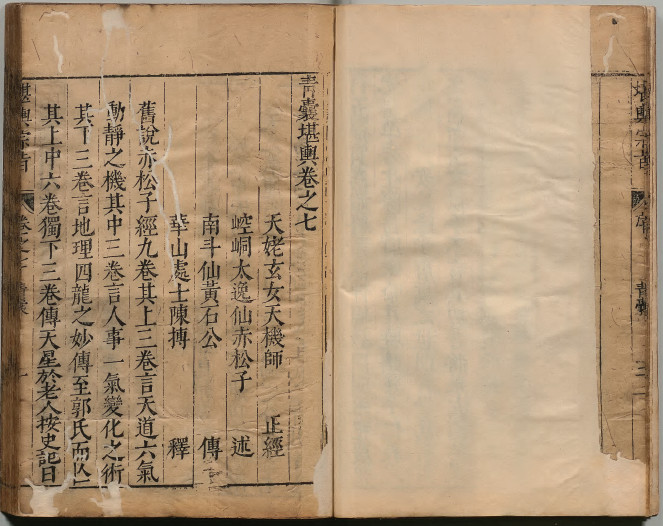 堪輿宗旨 序 青囊 三
青囊堪輿卷之七
天姥玄女天機師 正經
崆峒太逸仙赤松子 述
南斗仙黃石公 傳
華山處士陳摶 釋
舊說赤松子經九卷其上三卷言天道六氣
動靜之機其中三卷言人事一氣變化之術
其下三卷言地理四龍之妙傳至郭氏而亾
其上中六卷獨下三卷傳天星於老人按史記日
堪輿宗旨 卷之七 青囊 一